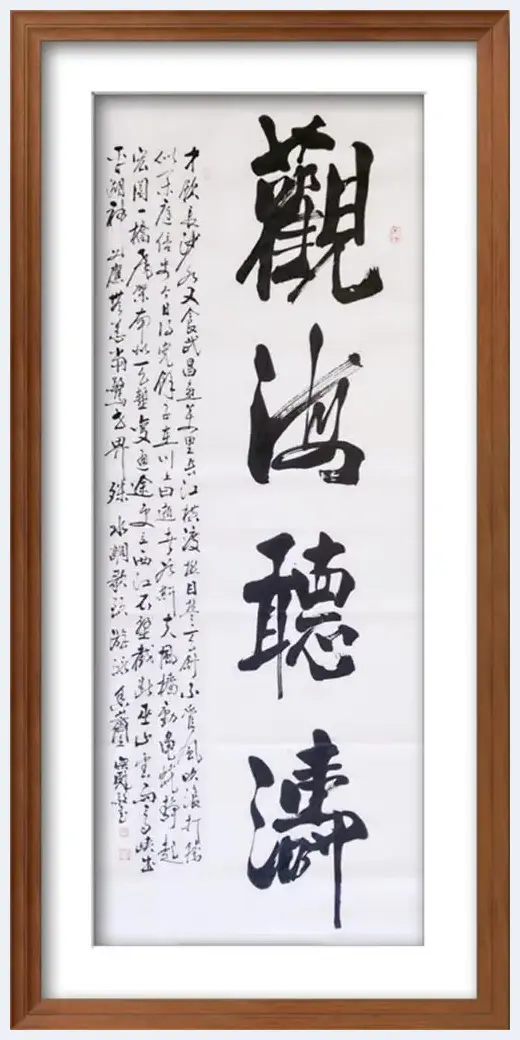 觀海聽濤
才飲長沙水又食武昌魚万里長江橫渡極目楚天舒不管風吹浪打勝
似閑庭信步今日得寬餘子在川上曰逝者如斯夫風檣動龜蛇靜起
宏圖一橋飛架南北天塹變通途更立西江石壁截斷巫山雲雨高峽出
平湖神女應無恙當驚世界殊 水調歌頭游泳